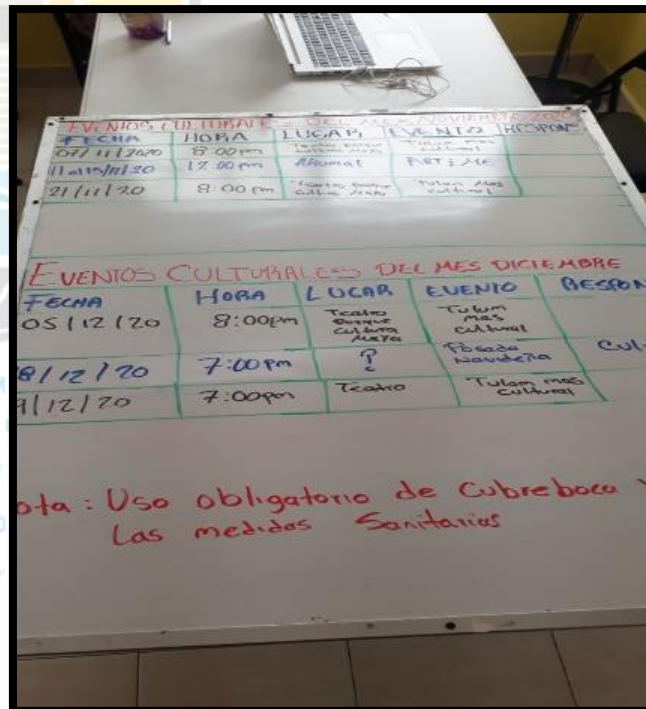 EVENTOS CULTURALES DEL MES NOVIEMBRE 2020
FECHA HORA LUGAR EVENTO RESPONS
07/11/2020 8:00pm Teatro Parque Cultura Maya Tulum Mas Cultural
11 al 15/11/20 17:00pm AKUMAL ARTE
21/11/20 8:00pm Teatro Parque Cultura Maya Tulum Mas Cultural
EVENTOS CULTURALES DEL MES DICIEMBRE
FECHA HORA LUGAR EVENTO RESPON
05/12/20 8:00pm Teatro Parque Cultura Maya Tulum mas cultural
8/12/20 7:00pm ? Posada Navideña Cul
9/12/20 7:00pm Teatro Tulum mas cultural
ota: Uso obligatorio de Cubreboca y
Las medidas Sanitarias